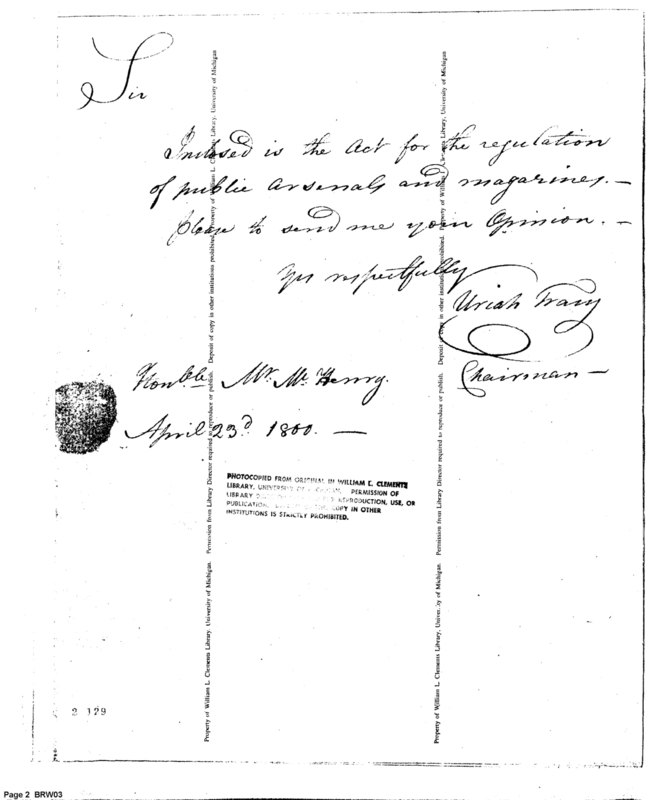 Sir
Inclosed is the Act for the regulation
of public Arsenals and magazines. —
please to send me your Opinion. —
Yrs respectfully
Uriah Tracy
Chairman —
Honble Mr. Mc Henry.
April 23d 1800. —
PHOTOCOPIED FROM ORIGINAL IN WILLIAM L. CLEMENTS
LIBRARY, UNIVERSITY OF MICHIGAN. PERMISSION OF
LIBRARY REPRODUCTION, USE, OR
PUBLICATION. COPY IN OTHER
INSTITUTIONS IS STRICTLY PROHIBITED.
Property of William L. Clements Library, University of Michigan. Permission from Library Director required to reproduce or publish. Deposit of copy in other institutions prohibited. Property of William L. Clements Library, University of Michigan
Property of William L. Clements Library, University of Michigan. Permission from Library Director required to reproduce or publish. Deposit of copy in other institutions prohibited. Property of William L. Clements Library, University of Michigan
2 129
Page 2 BRW03